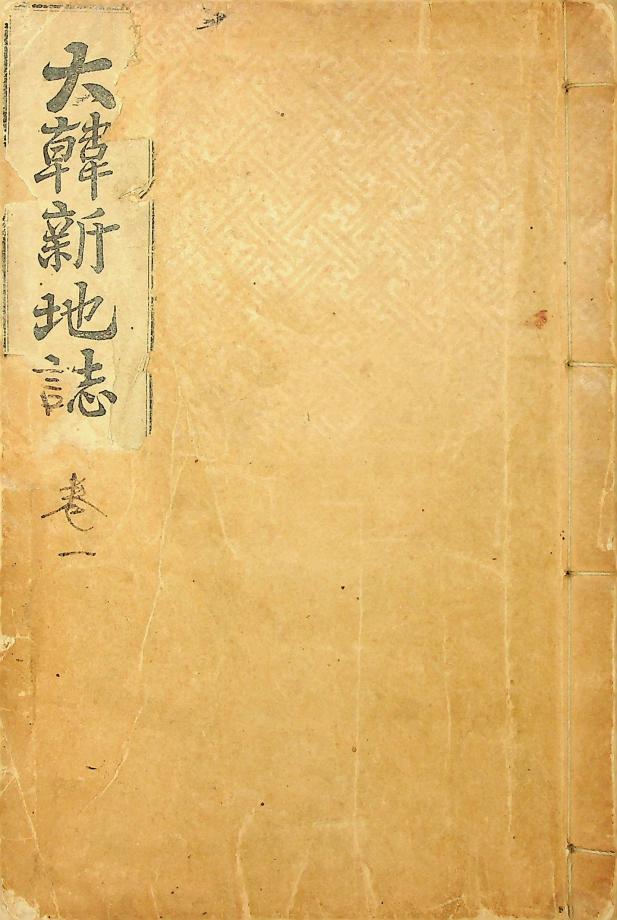 大韓新地誌
卷一